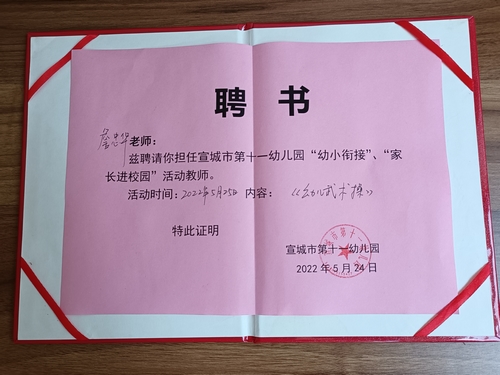 聘书
詹忠华老师：
兹聘请你担任宣城市第十一幼儿园“幼小衔接”、“家
长进校园”活动教师。
活动时间：2022年5月25日 内容：《幼儿武术操》
特此证明
宣城市第十一幼儿园
2022年5月24日